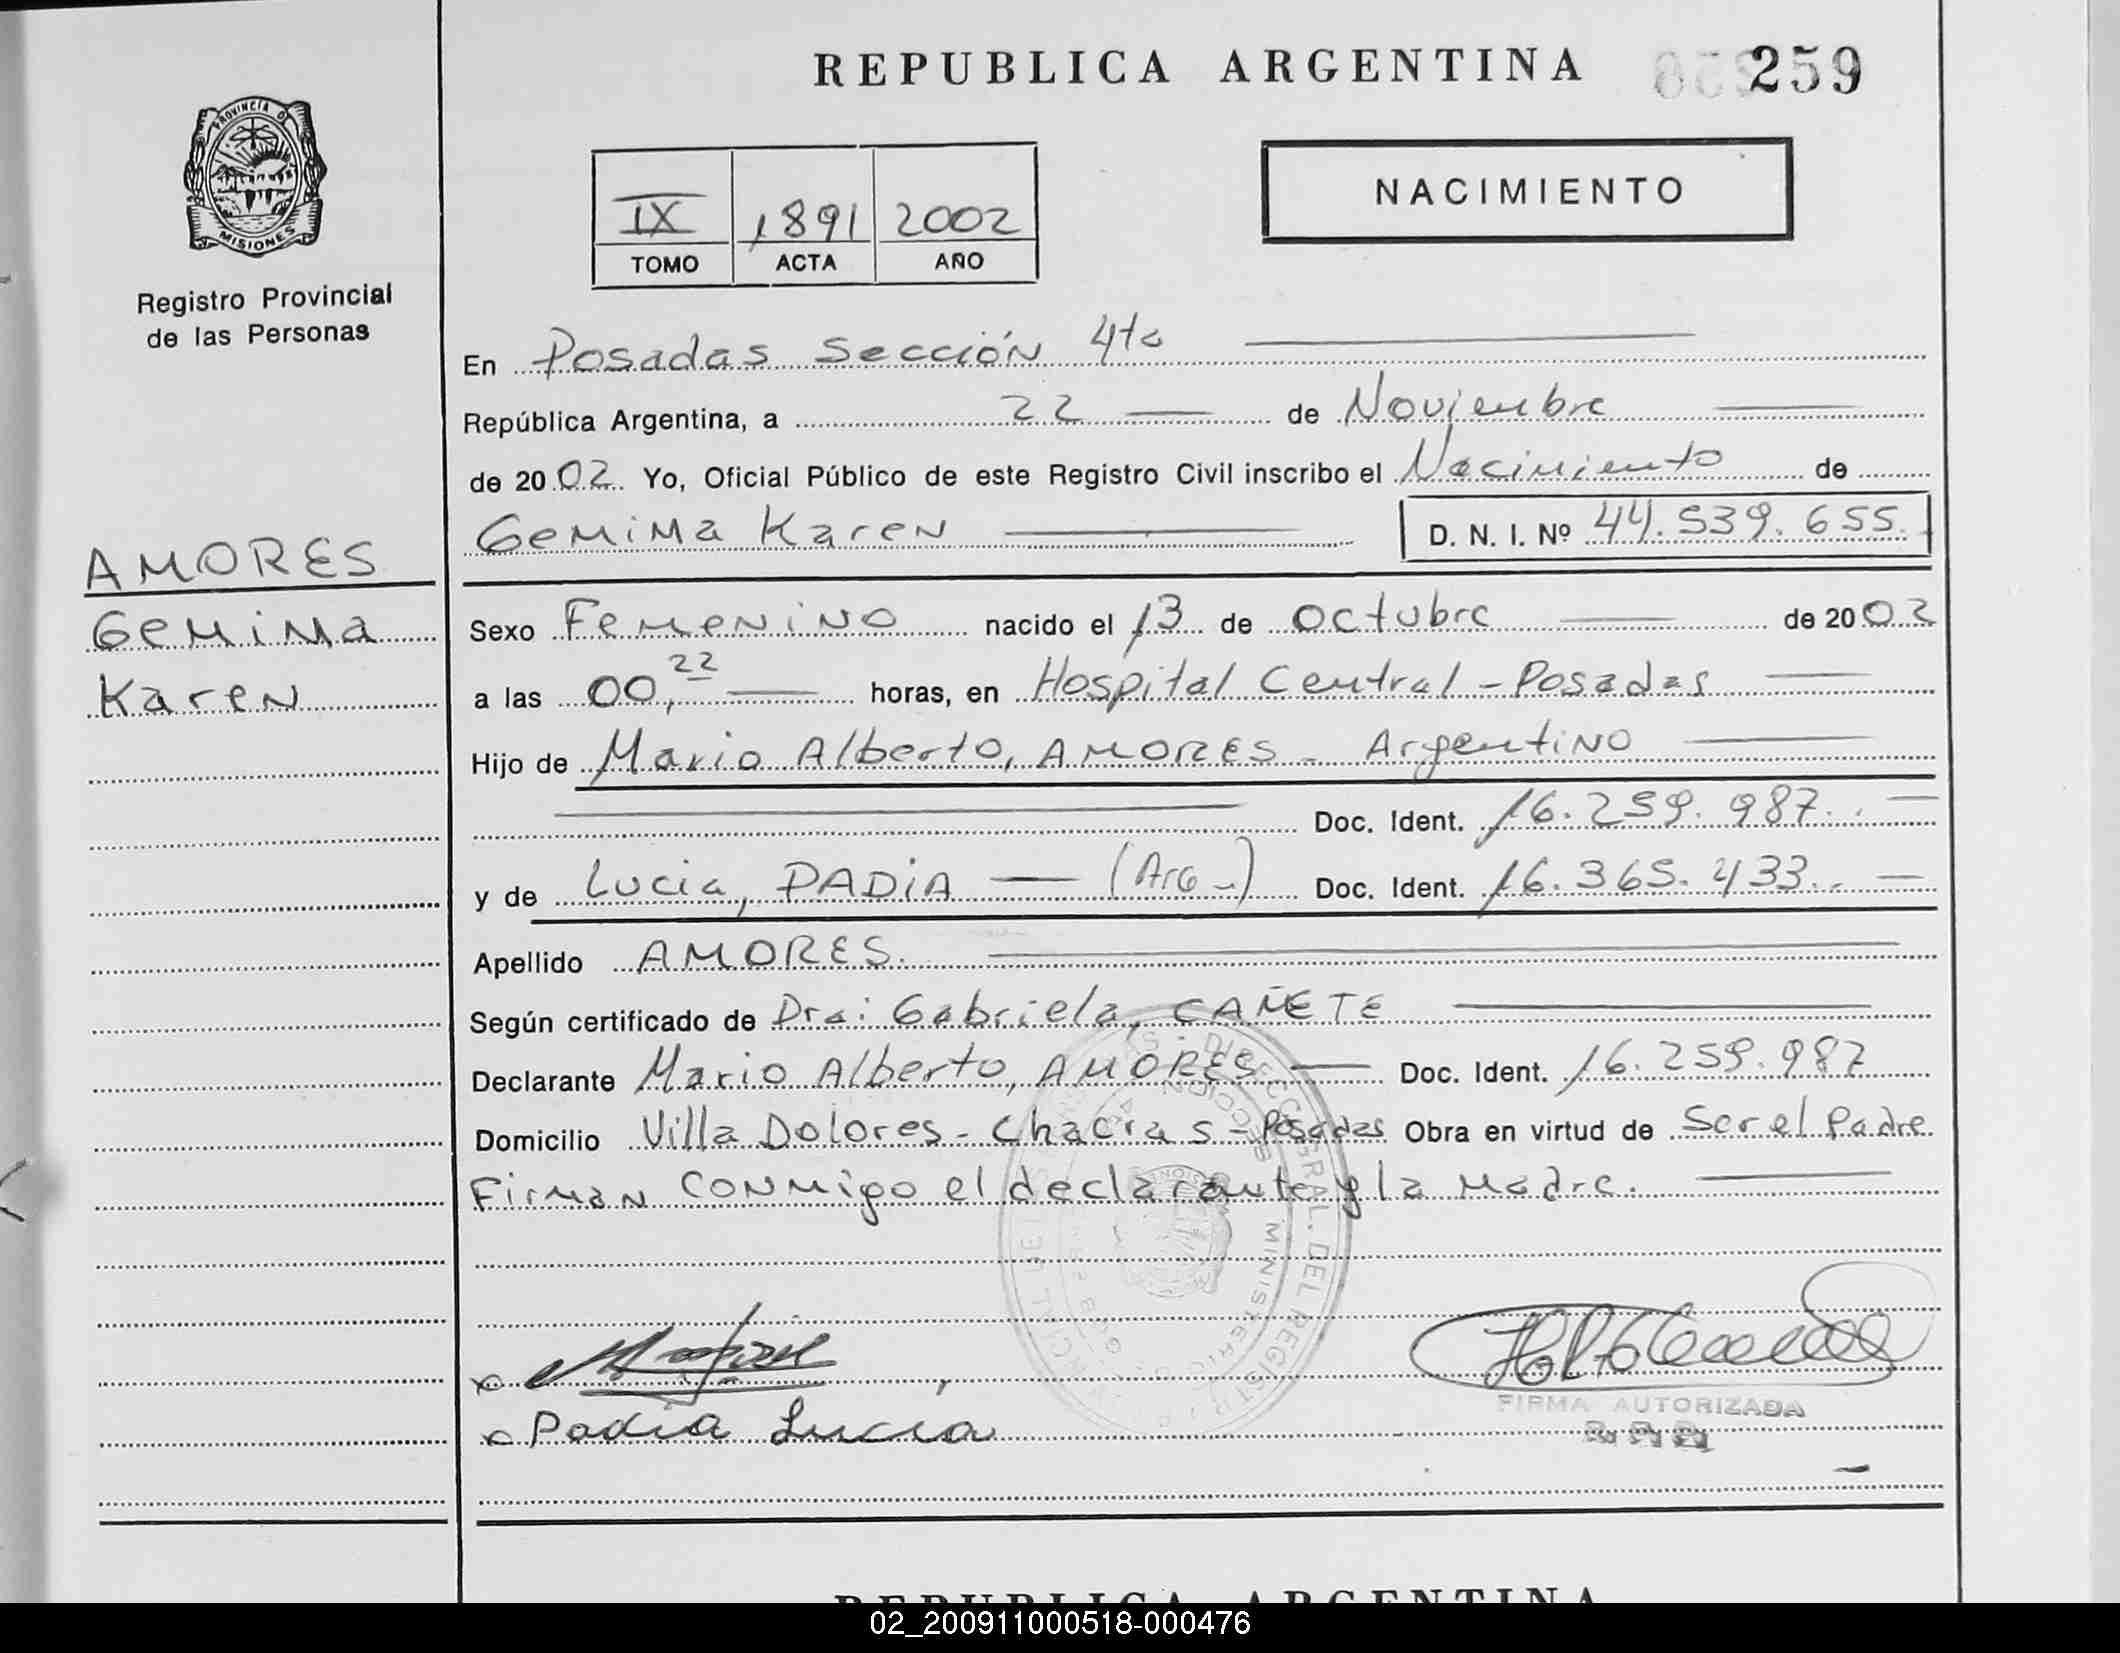 REPUBLICA ARGENTINA 259
PROVINCIA DE
MISIONES
Registro Provincial
de las Personas
IX 1891 2002
TOMO ACTA AÑO
NACIMIENTO
En Posadas Sección 4ta
República Argentina, a 22 de Noviembre
de 2002 Yo, Oficial Público de este Registro Civil inscribo el Nacimiento de
Gemima Karen D. N. I. Nº 44.539.655.
AMORES
Gemima
Karen
Sexo Femenino nacido el 13 de octubre de 2002
a las 00,22 horas, en Hospital Central - Posadas
Hijo de Mario Alberto, AMORES - Argentino
Doc. Ident. 16.259.987.
y de Lucia, PADIA (Arg.) Doc. Ident. 16.365.433.
Apellido AMORES.
Según certificado de Dra: Gabriela, CAÑETE
Declarante Mario Alberto, AMORES Doc. Ident. 16.259.987
Domicilio Villa Dolores - Chacra 5 - Posadas Obra en virtud de Ser el Padre
Firman conmigo el declarante y la Madre.
Padia Lucia
FIRMA AUTORIZADA
REPUBLICA ARGENTINA
02_200911000518-000476